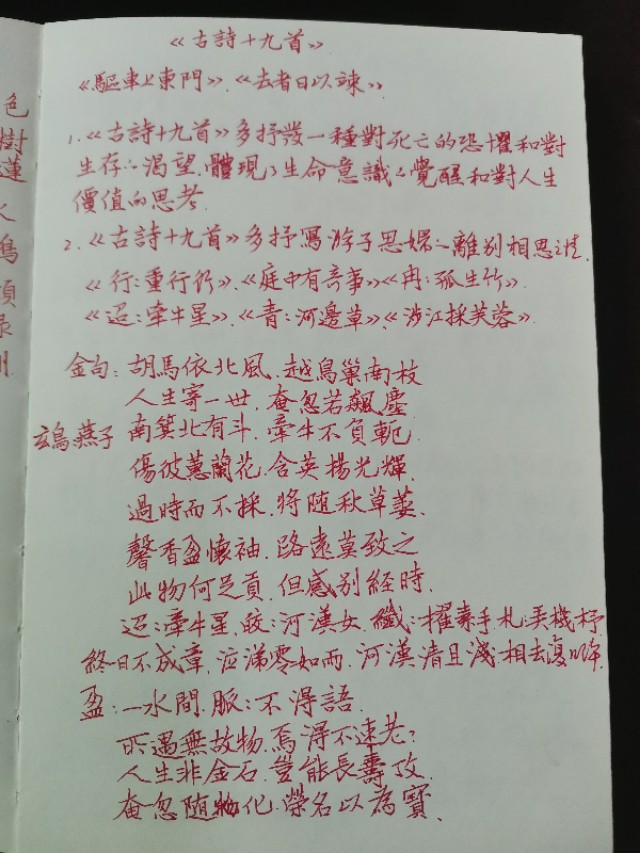 《古詩十九首》
《驅車上東門》、《去者日以疎》
1.《古詩十九首》多抒發一種對死亡的恐懼和對
生存之渴望、體現了生命意識之覺醒和對人生
價值的思考.
2.《古詩十九首》多抒寫游子思婦之離别相思之情.
《行:重行行》、《庭中有奇事》《冉:孤生竹》、
《迢:牽牛星》、《青:河邊草》《涉江採芙蓉》
金句:胡馬依北風.越鳥巢南枝
人生寄一世.奄忽若飆塵
玄鳥:燕子 南箕北有斗.牽牛不負軛.
傷彼蕙蘭花.含英揚光輝.
過時而不採.將随秋草萎.
馨香盈懷袖.路遠莫致之
此物何足貢.但感别経時.
迢:牽牛星.皎:河漢女.纖:擢素手.札:弄機杼
終日不成章.泣涕零如雨.河漢清且淺.相去復幾許
盈:一水間.脈:不得語.
所遇無故物.焉得不速老?
人生非金石.豈能長壽攷.
奄忽随物化.榮名以為寶.
色
樹
蓮
人
鳥
項